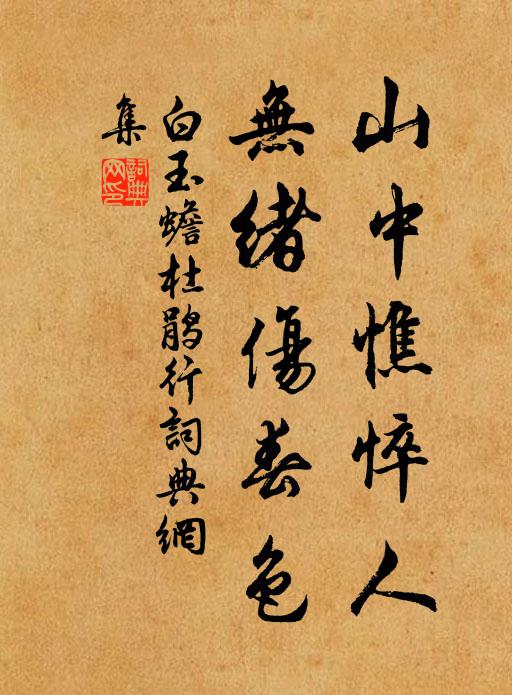 山中憔悴人
無緒傷春色
白玉蟾杜鵑行詞典網
集
詞典网印